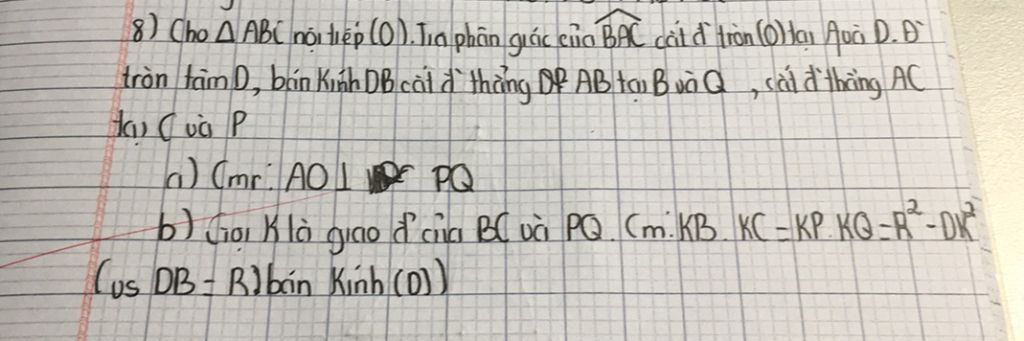 8) Cho Δ ABC nội tiếp (O). Tia phân giác của BAC cắt đ' tròn (O) tại A và D. Đ'
tròn tâm D, bán kính DB cắt đ' thẳng AB tại B và Q , cắt đ' thẳng AC
tại C và P
a) Cmr: AO ⊥ PQ
b) Gọi K là giao đ' của BC và PQ. Cm: KB. KC = KP. KQ = R² - DK²
(vs DB = R) bán kính (D))